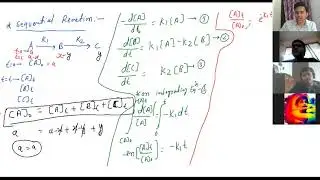 * Sequential Reaction:-
A K₁→ B K₂→ C
x-y y
t=0 → [A]₀
t=t → [A]t
[B]t
[C]t
[A]₀ = [A]t + [B]t + [C]t
a = a-x + x-y + y
a = a
-d[A]/dt = K₁[A] -①
d[B]/dt = K₁[A] - K₂[B] -②
d[C]/dt = K₂[B] -③
on integrating
∫ d[A]/[A] = ∫ -K₁dt
[A]t
[A]₀
-ln [A]t/[A]₀ = -K₁t
[A]t/[A]₀ = e^-K₁t